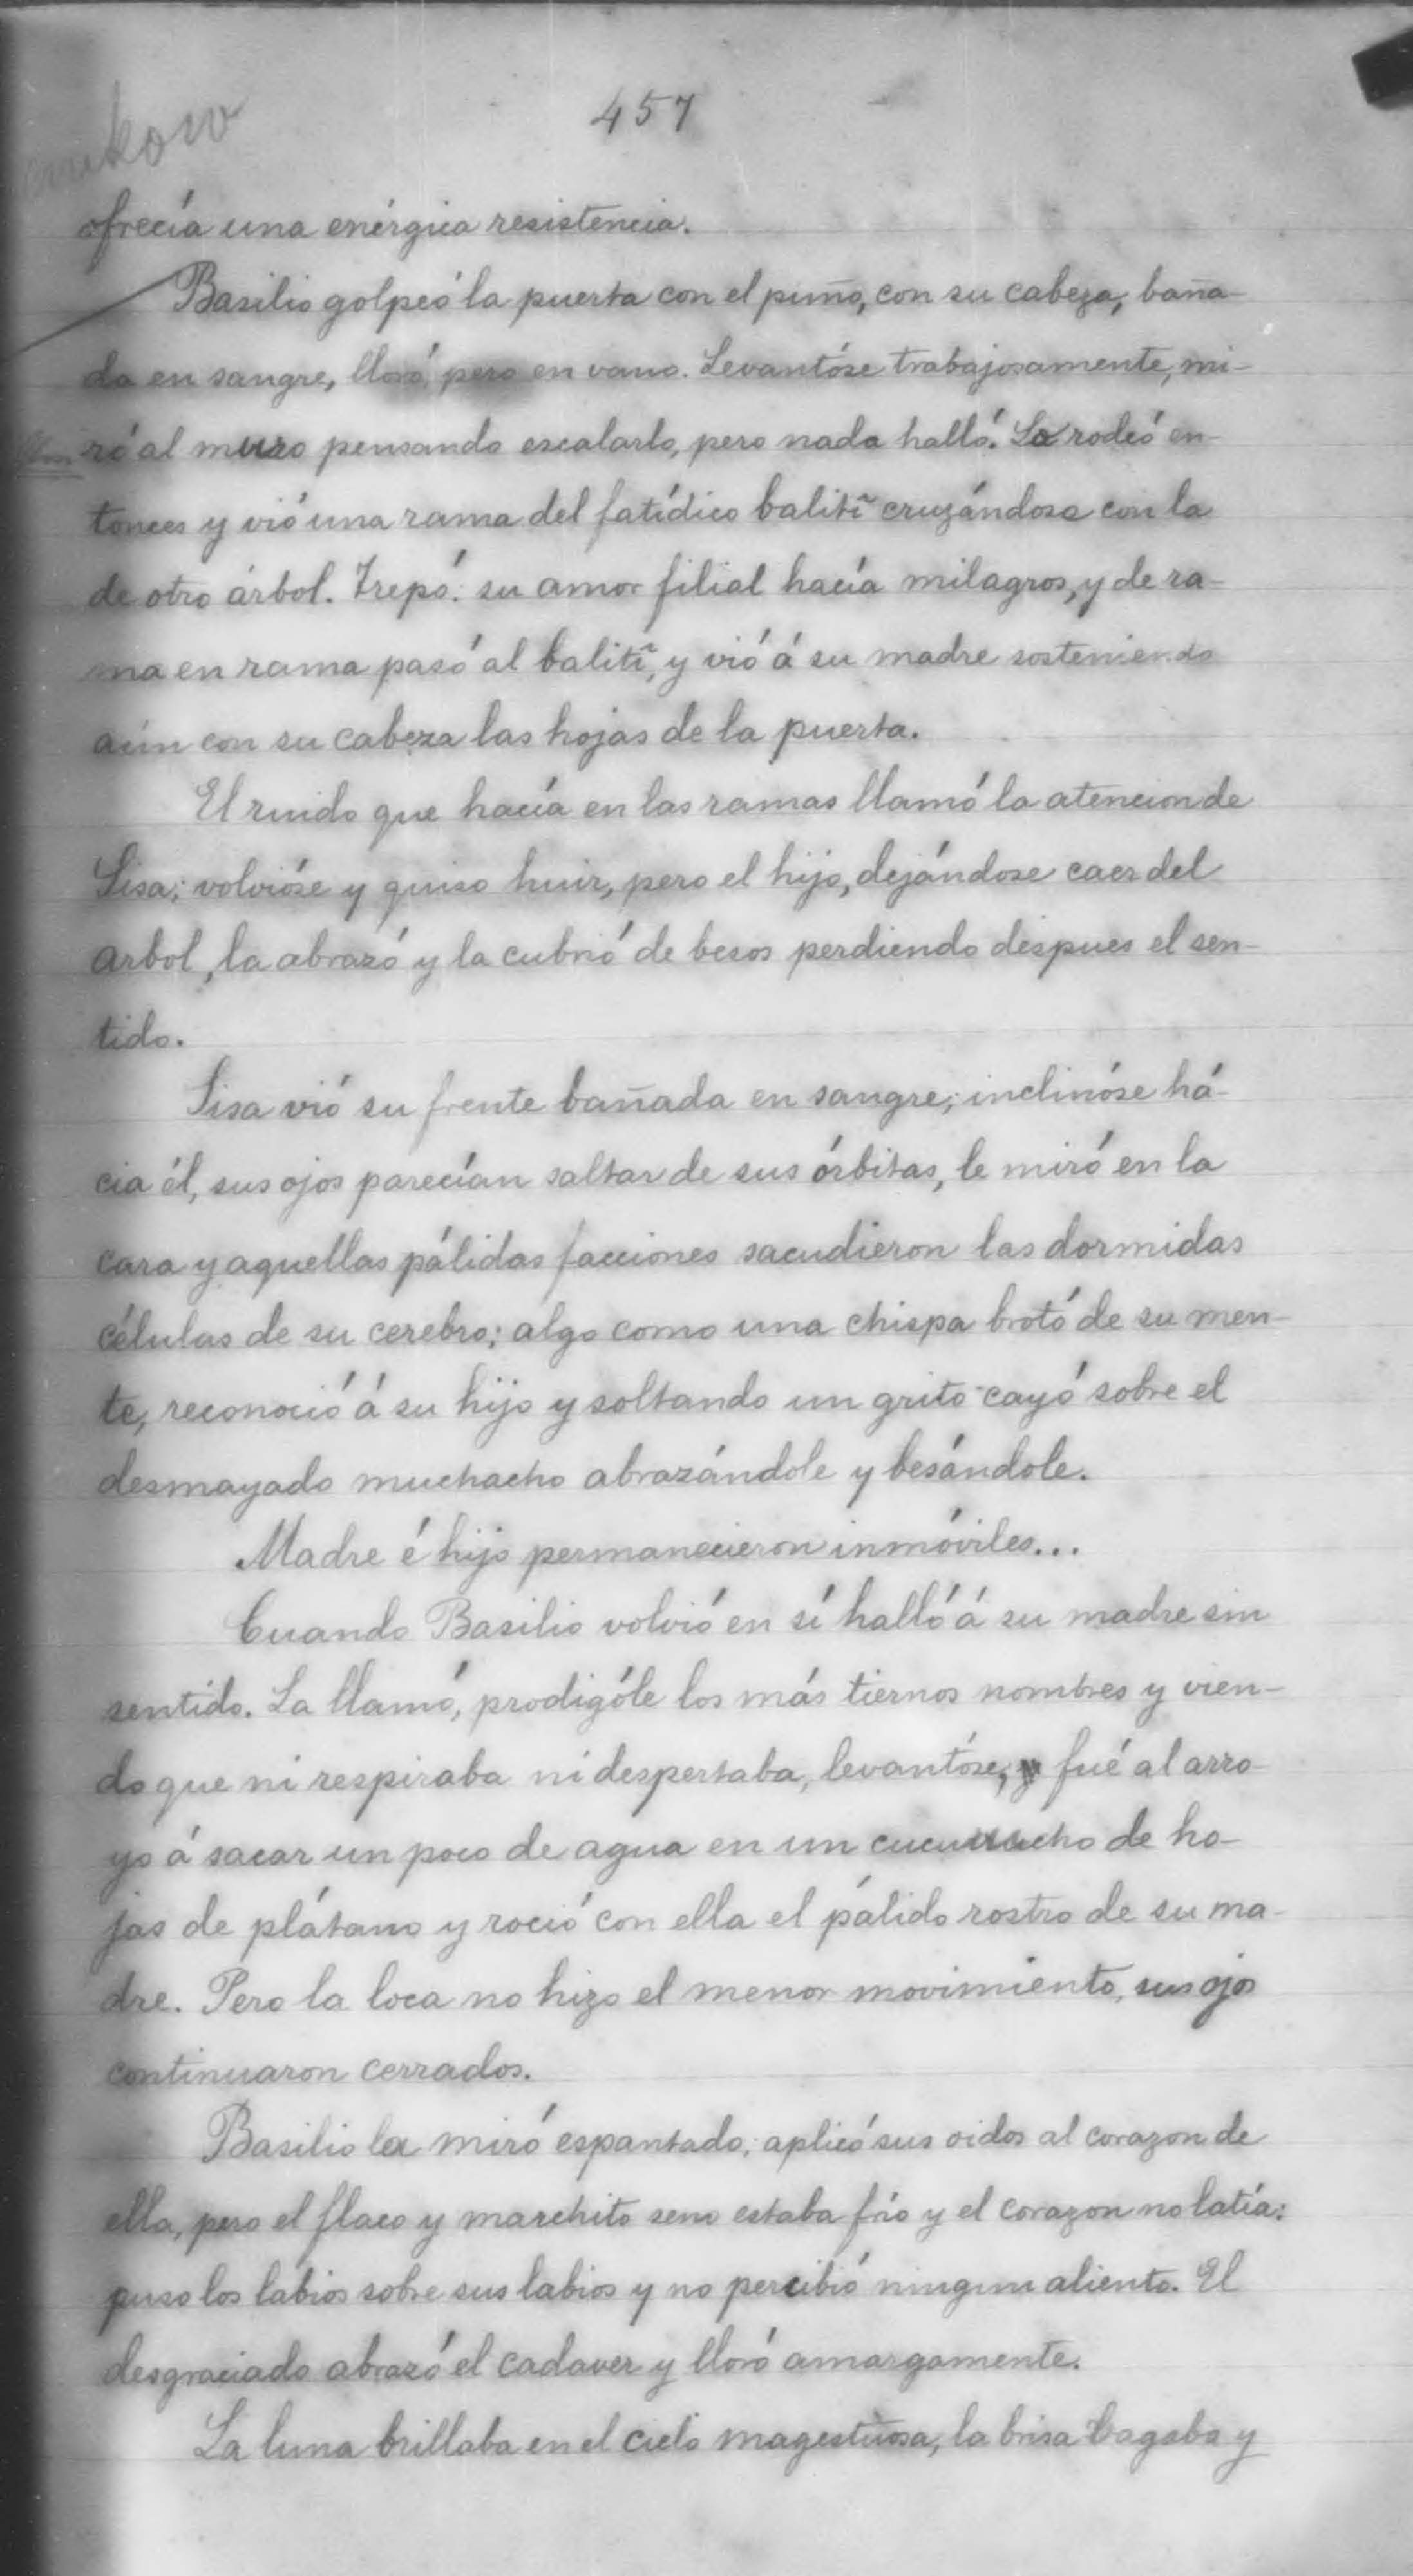 457
ofrecía una enérgica resistencia.
Basilio golpeó la puerta con el puño, con su cabeza, baña-
da en sangre, lloró, pero en vano. Levantóse trabajosamente, mi-
ró al muro pensando escalarlo, pero nada halló. Lo rodeó en-
tonces y vió una rama del fatídico balitî cruzándose con la
de otro árbol. Trepó: su amor filial hacía milagros, y de ra-
ma en rama pasó al balitî, y vió á su madre sosteniendo
aún con su cabeza las hojas de la puerta.
El ruido que hacía en las ramas llamó la atencion de
Sisa; volvióse y quiso huir, pero el hijo, dejándose caer del
arbol, la abrazó y la cubrió de besos perdiendo despues el sen-
tido.
Sisa vió su frente bañada en sangre; inclinóse há-
cia él, sus ojos parecían saltar de sus órbitas, le miró en la
cara y aquellas pálidas facciones sacudieron las dormidas
células de su cerebro; algo como una chispa brotó de su men-
te, reconoció á su hijo y soltando un grito cayó sobre el
desmayado muchacho abrazándole y besándole.
Madre é hijo permanecieron inmóviles...
Cuando Basilio volvió en sí halló á su madre sin
sentido. La llamó, prodigóle los más tiernos nombres y vien-
do que ni respiraba ni despertaba, levantóse, fué al arro-
yo á sacar un poco de agua en un cucurucho de ho-
jas de plátano y roció con ella el pálido rostro de su ma-
dre. Pero la loca no hizo el menor movimiento, sus ojos
continuaron cerrados.
Basilio la miró espantado; aplicó sus oidos al corazon de
ella, pero el flaco y marchito seno estaba frío y el corazon no latía:
puso los labios sobre sus labios y no percibió ningun aliento. El
desgraciado abrazó el cadaver y lloró amargamente.
La luna brillaba en el cielo magestuosa, la brisa vagaba y